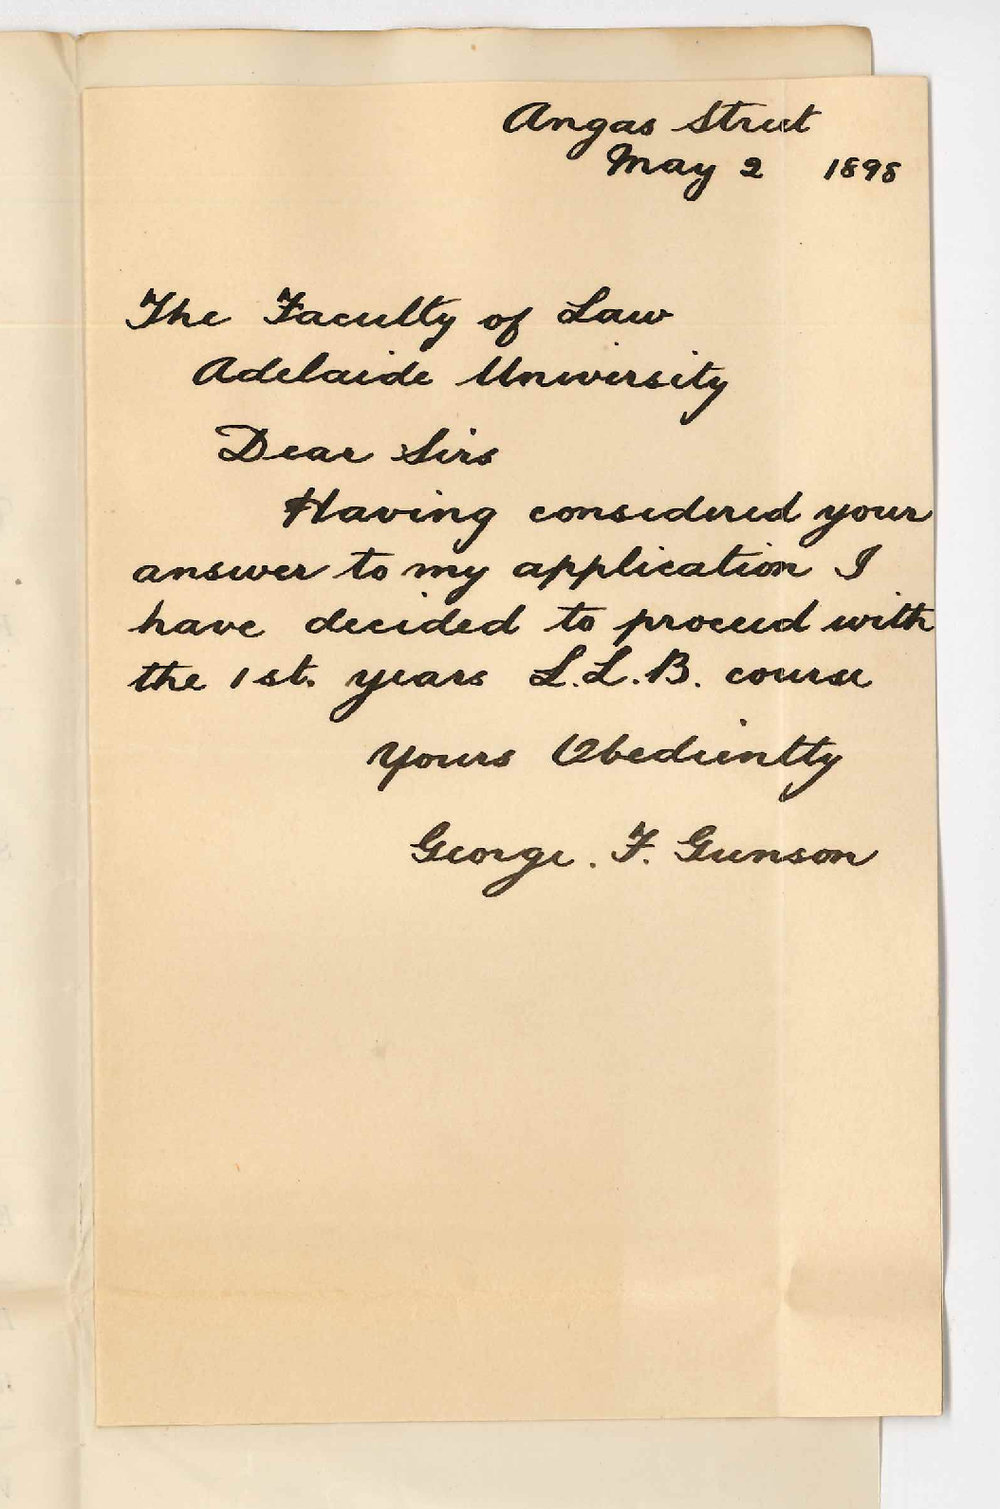 Angas Street
May 2 1898
The Faculty of Law
Adelaide University
Dear Sirs
Having considered your
answer to my application I
have decided to proceed with
the 1st. years L.L.B. course
Yours Obediently
George. F. Gunson